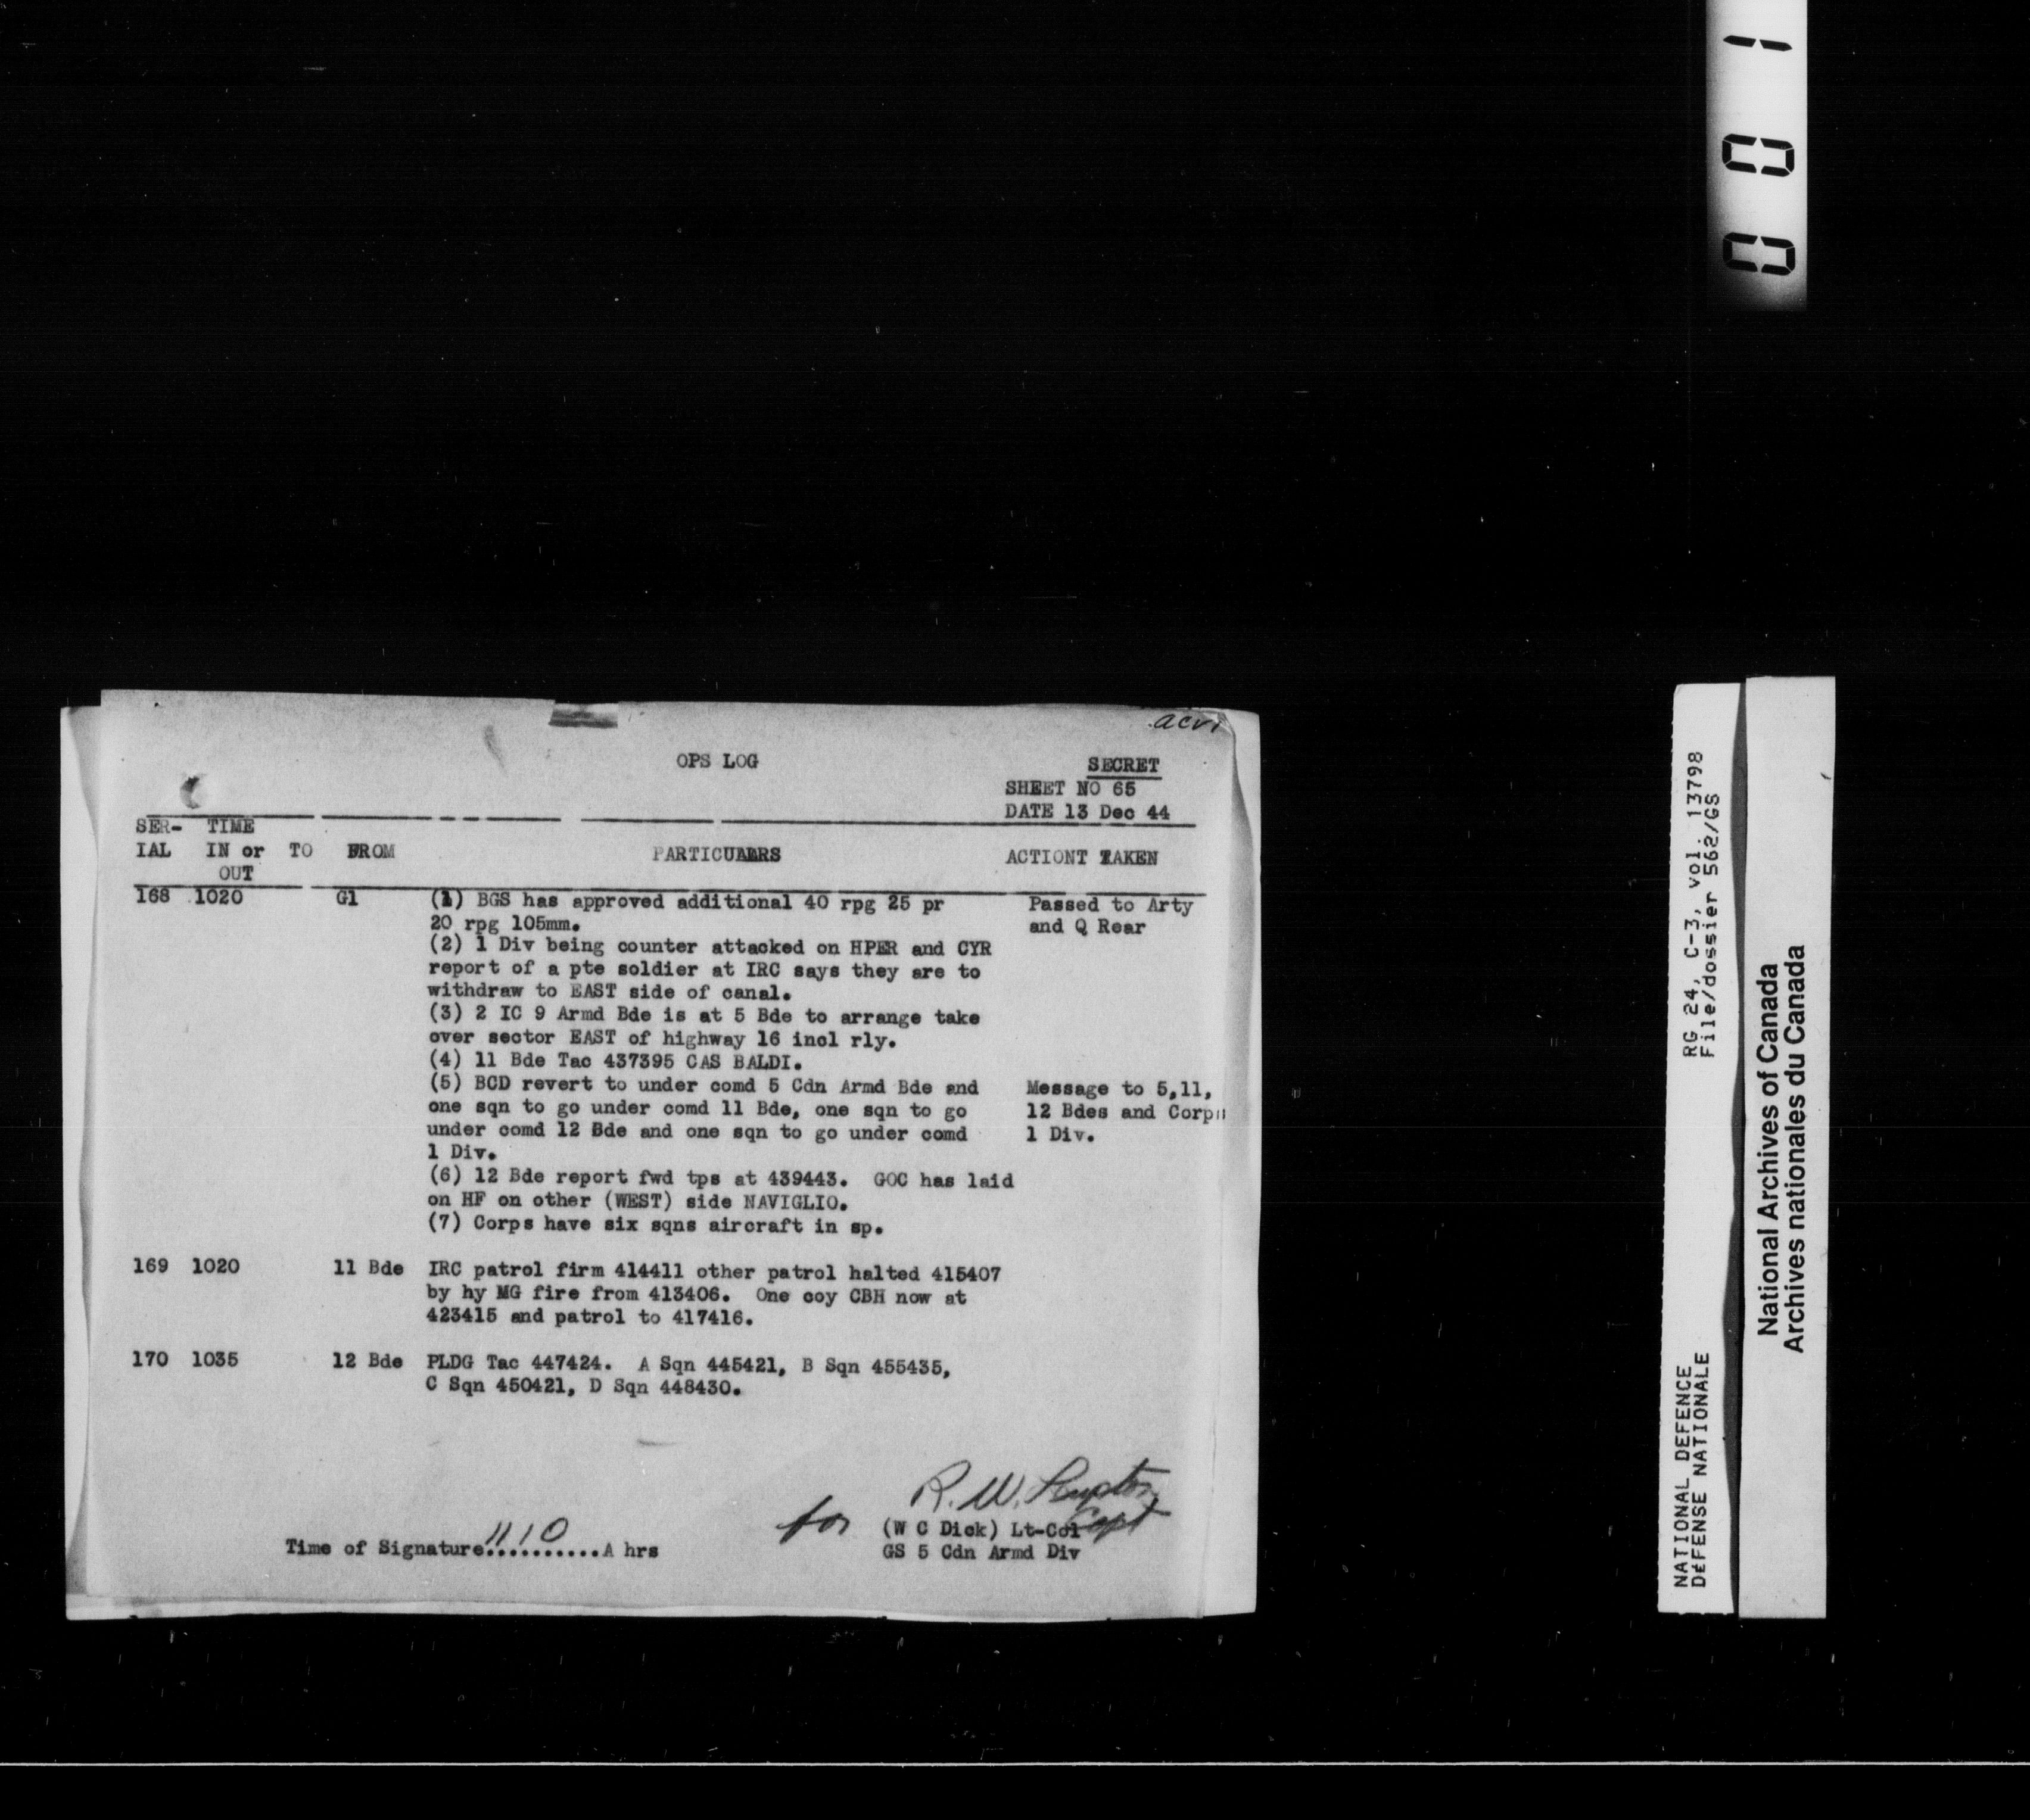 001
acvi
OPS LOG
SECRET
SHEET NO 65
DATE 13 Dec 44
SER- TIME
IAL IN or TO FROM PARTICULARS ACTIONT TAKEN
OUT
168 1020 G1 (1) BGS has approved additional 40 rpg 25 pr Passed to Arty
20 rpg 105mm. and Q Rear
(2) 1 Div being counter attacked on HPER and CYR
report of a pte soldier at IRC says they are to
withdraw to EAST side of canal.
(3) 2 IC 9 Armd Bde is at 5 Bde to arrange take
over sector EAST of highway 16 incl rly.
(4) 11 Bde Tac 437395 CAS BALDI.
(5) BCD revert to under comd 5 Cdn Armd Bde and Message to 5,11,
one sqn to go under comd 11 Bde, one sqn to go 12 Bdes and Corps
under comd 12 Bde and one sqn to go under comd 1 Div.
1 Div.
(6) 12 Bde report fwd tps at 439443. GOC has laid
on HF on other (WEST) side NAVIGLIO.
(7) Corps have six sqns aircraft in sp.
169 1020 11 Bde IRC patrol firm 414411 other patrol halted 415407
by hy MG fire from 413406. One coy CBH now at
423415 and patrol to 417416.
170 1035 12 Bde PLDG Tac 447424. A Sqn 445421, B Sqn 455435,
C Sqn 450421, D Sqn 448430.
R. W.
for (W C Dick) Lt-Col Capt
Time of Signature 1110 A hrs GS 5 Cdn Armd Div
RG 24, C-3, vol. 13798
File/dossier 562/GS
NATIONAL DEFENCE
DéFENSE NATIONALE
National Archives of Canada
Archives nationales du Canada